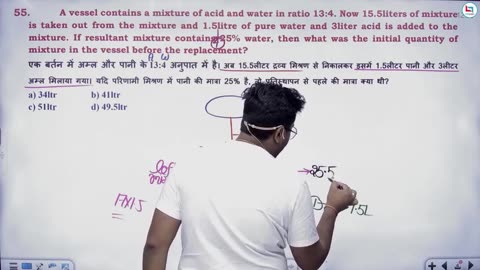 55. A vessel contains a mixture of acid and water in ratio 13:4. Now 15.5liters of mixture
is taken out from the mixture and 1.5litre of pure water and 3liter acid is added to the
mixture. If resultant mixture contains 25% water, then what was the initial quantity of
mixture in the vessel before the replacement?
A W
एक बर्तन में अम्ल और पानी के 13:4 अनुपात में है। अब 15.5लीटर द्रव्य मिश्रण से निकालकर इसमें 1.5लीटर पानी और 3लीटर
अम्ल मिलाया गया। यदि परिणामी मिश्रण में पानी की मात्रा 25% है, तो प्रतिस्थापन से पहले की मात्रा क्या थी?
a) 34ltr b) 41ltr
c) 51ltr d) 49.5ltr
25.5
17X15
1.5L